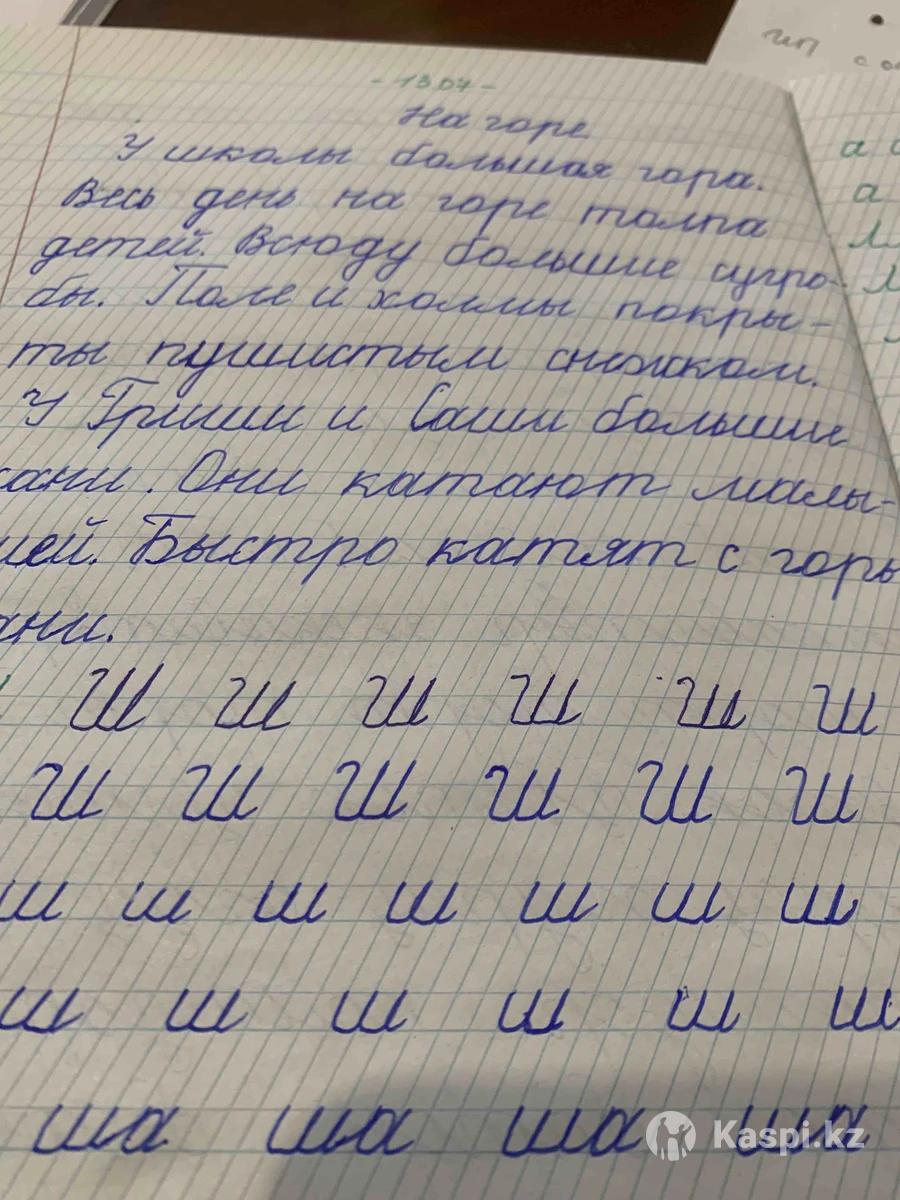 - 13.07 -
На горе
У школы большая гора.
Весь день на горе толпа
детей. Всюду большие сугро-
бы. Поле и холмы покры-
ты пушистым снежком.
У Гриши и Саши большие
сани. Они катают малы-
шей. Быстро катят с горы
сани.
Ш Ш Ш Ш Ш Ш
Ш Ш Ш Ш Ш Ш
ш ш ш ш ш ш ш
ш ш ш ш ш ш
ша ша ша ша
Kaspi.kz